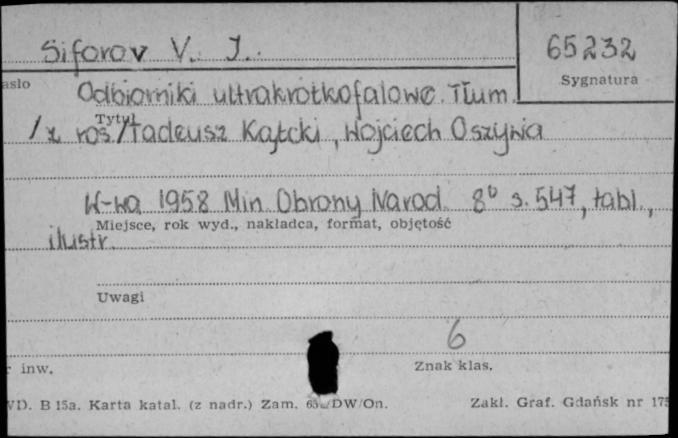 Siforov V. I. 65232
asło Sygnatura
Odbiorniki ultrakrótkofalowe. Tłum.
Tytuł
/z ros/ Tadeusz Kątcki, Wojciech Oszywa
W-wa 1958 Min Obrony Narod. 8° s. 547, tabl.,
Miejsce, rok wyd., nakładca, format, objętość
ilustr.
Uwagi
6
inw. Znak klas.
D. B 15a. Karta katal. (z nadr.) Zam. DW/On. Zakł. Graf. Gdańsk nr 175